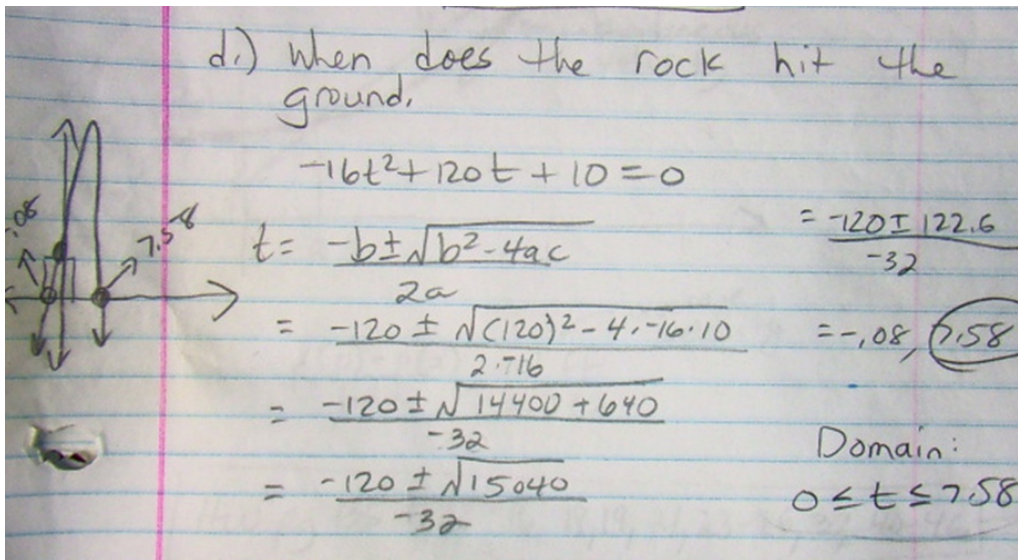 d.) When does the rock hit the
ground.
-16t²+120t+10=0
t= -b±√b²-4ac
2a
= -120 ± √(120)²-4·-16·10
2·-16
= -120±√14400+640
-32
= -120±√15040
-32
= -120± 122.6
-32
=-.08, 7.58
Domain:
0≤t≤7.58
.08
7.58